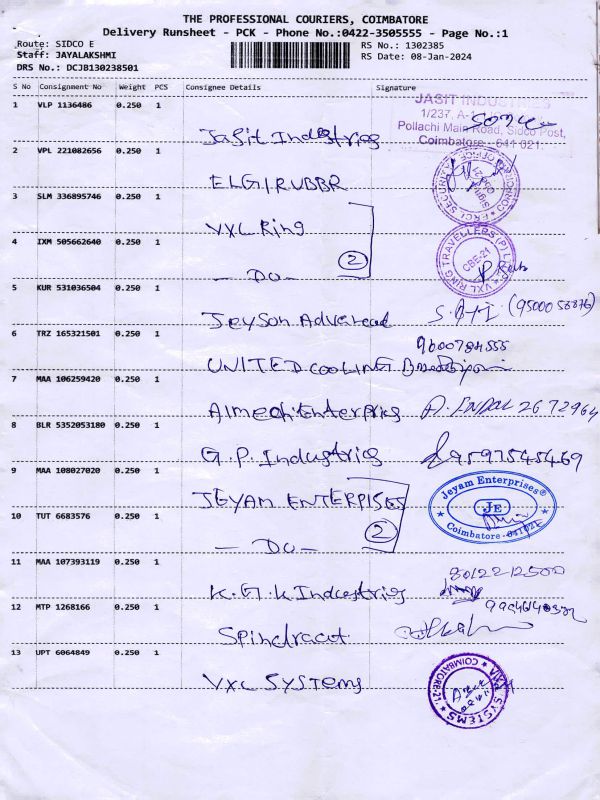 THE PROFESSIONAL COURIERS, COIMBATORE
Delivery Runsheet - PCK - Phone No.:0422-3505555 - Page No.:1
Route: SIDCO E
Staff: JAYALAKSHMI
DRS No.: DCJB130238501
RS No.: 1302385
RS Date: 08-Jan-2024
S No Consignment No Weight PCS Consignee Details Signature
1 VLP 1136486 0.250 1
Jasit Industries
JASIT INDUSTRIES
1/237, A-1
Pollachi Main Road, Sidco Post,
Coimbatore - 641 021.
2 VPL 221082656 0.250 1
ELGI RUBBR
3 SLM 336895746 0.250 1
VXL Ring
4 IXM 505662640 0.250 1
- DO -
2
VXL RING TRAVELLERS (P) L
CBE-21
5 KUR 531036504 0.250 1
Jeyson Advanced
6 TRZ 165321501 0.250 1
9600784555
UNITED COOLING
7 MAA 106259420 0.250 1
Almech Enterpries
8 BLR 5352053180 0.250 1
G.P. Industries
9597545469
9 MAA 108027020 0.250 1
JEYAM ENTERPISES
10 TUT 6683576 0.250 1
- DO -
2
Jeyam Enterprises®
JE
Coimbatore - 641021
11 MAA 107393119 0.250 1
K.G.K Industries
12 MTP 1268166 0.250 1
13 UPT 6064849 0.250 1
VXL SYSTEMS
VXL SYSTEMS
COIMBATORE-21